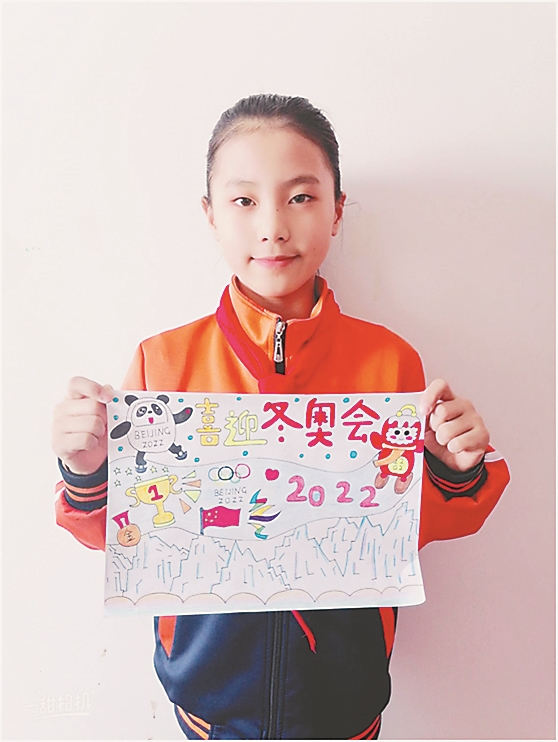 喜迎冬奥会
BEIJING
2022
1
BEIJING
2022
2022
金